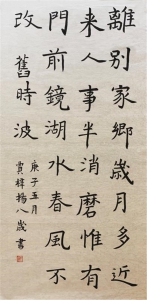 離別家鄉歲月多近
来人事半消磨惟有
門前鏡湖水春風不
改舊時波
庚子五月
賈樟揚八歲書